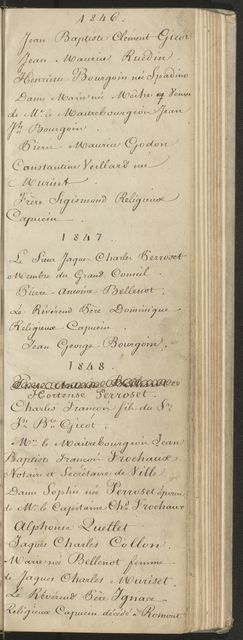 1846.
Jean Baptiste Clement Gicot
Jean Maurice Ruedin
Henriette Bourgoin née Spadino
Dame Marie née Möche Veuve
de Mr. le Maitrebourgeoin Jean
Pre Bourgoin.
Pierre Maurice Godon
Constantine Veillard née
Muriset.
Frère Sigismond Religieux
Capucin.
1847.
Le Sieur Jaque Charles Perroset
Membre du Grand Conseil.
Pierre Antoine Bellenot.
Le Révérend Père Dominique
Religieux Capucin.
Jean George Bourgoin.
1848.
Hortense Perroset.
Charles François fils du Sr.
Jn. Bte. Gicot.
Mr. le Maitrebourgeoin Jean
Baptiste François Frochaux
Notaire et Secrétaire de Ville
Dame Sophie née Perroset épouse
de Mr. le Capitaine Chs. Frochaux
Alphonse Quellet
Jaques Charles Collon.
Marie née Bellenot femme
de Jaques Charles Muriset.
Le Révérend Père Ignace
Religieux Capucin décédé à Romont